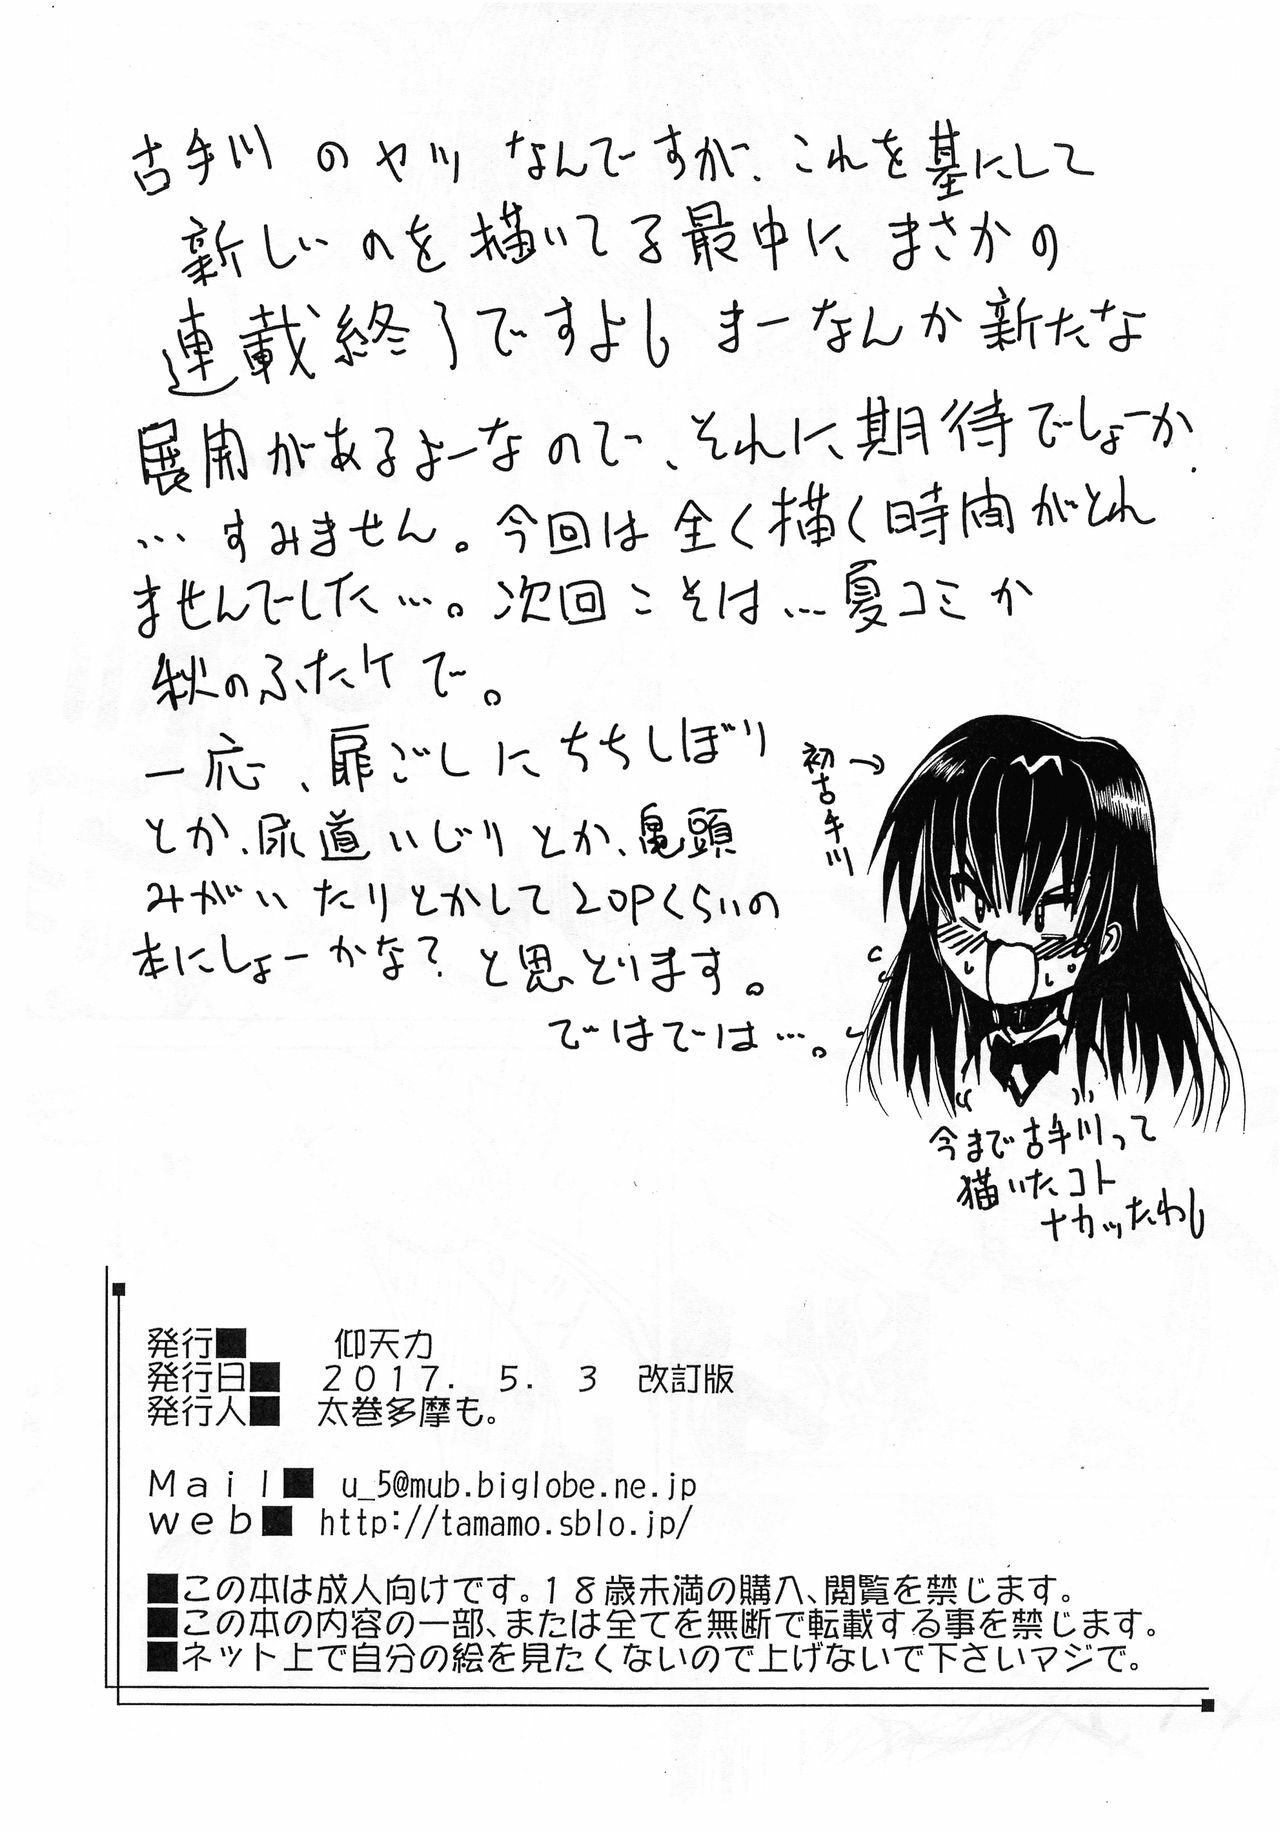 古手川のヤツなんですが、これを墓にして
新しいのを描いてる最中にまさかの
連載終了ですよし まーなんか新たな
展開があるよーなので、それに期待でしょーか.
…すみません。今回は全く描く時間がとれ
ませんでした…。次回こそは…夏コミか
秋のふたケで。
一応、扉ごしにちちしぼり
とか、尿道いじりとか、亀頭
みがいたりとかして20Pくらいの
本にしょーかな?と思っとります。
ではでは…。
初古手川→
今まで古手川って
描いたコト
ナカッたわし
発行■ 仰天力
発行日■ 2017. 5. 3 改訂版
発行人■ 太巻多摩も。
Mail■ u_5@mub.biglobe.ne.jp
web■ http://tamamo.sblo.jp/
■この本は成人向けです。18歳未満の購入、閲覧を禁じます。
■この本の内容の一部、または全てを無断で転載する事を禁じます。
■ネット上で自分の絵を見たくないので上げないで下さいマジで。